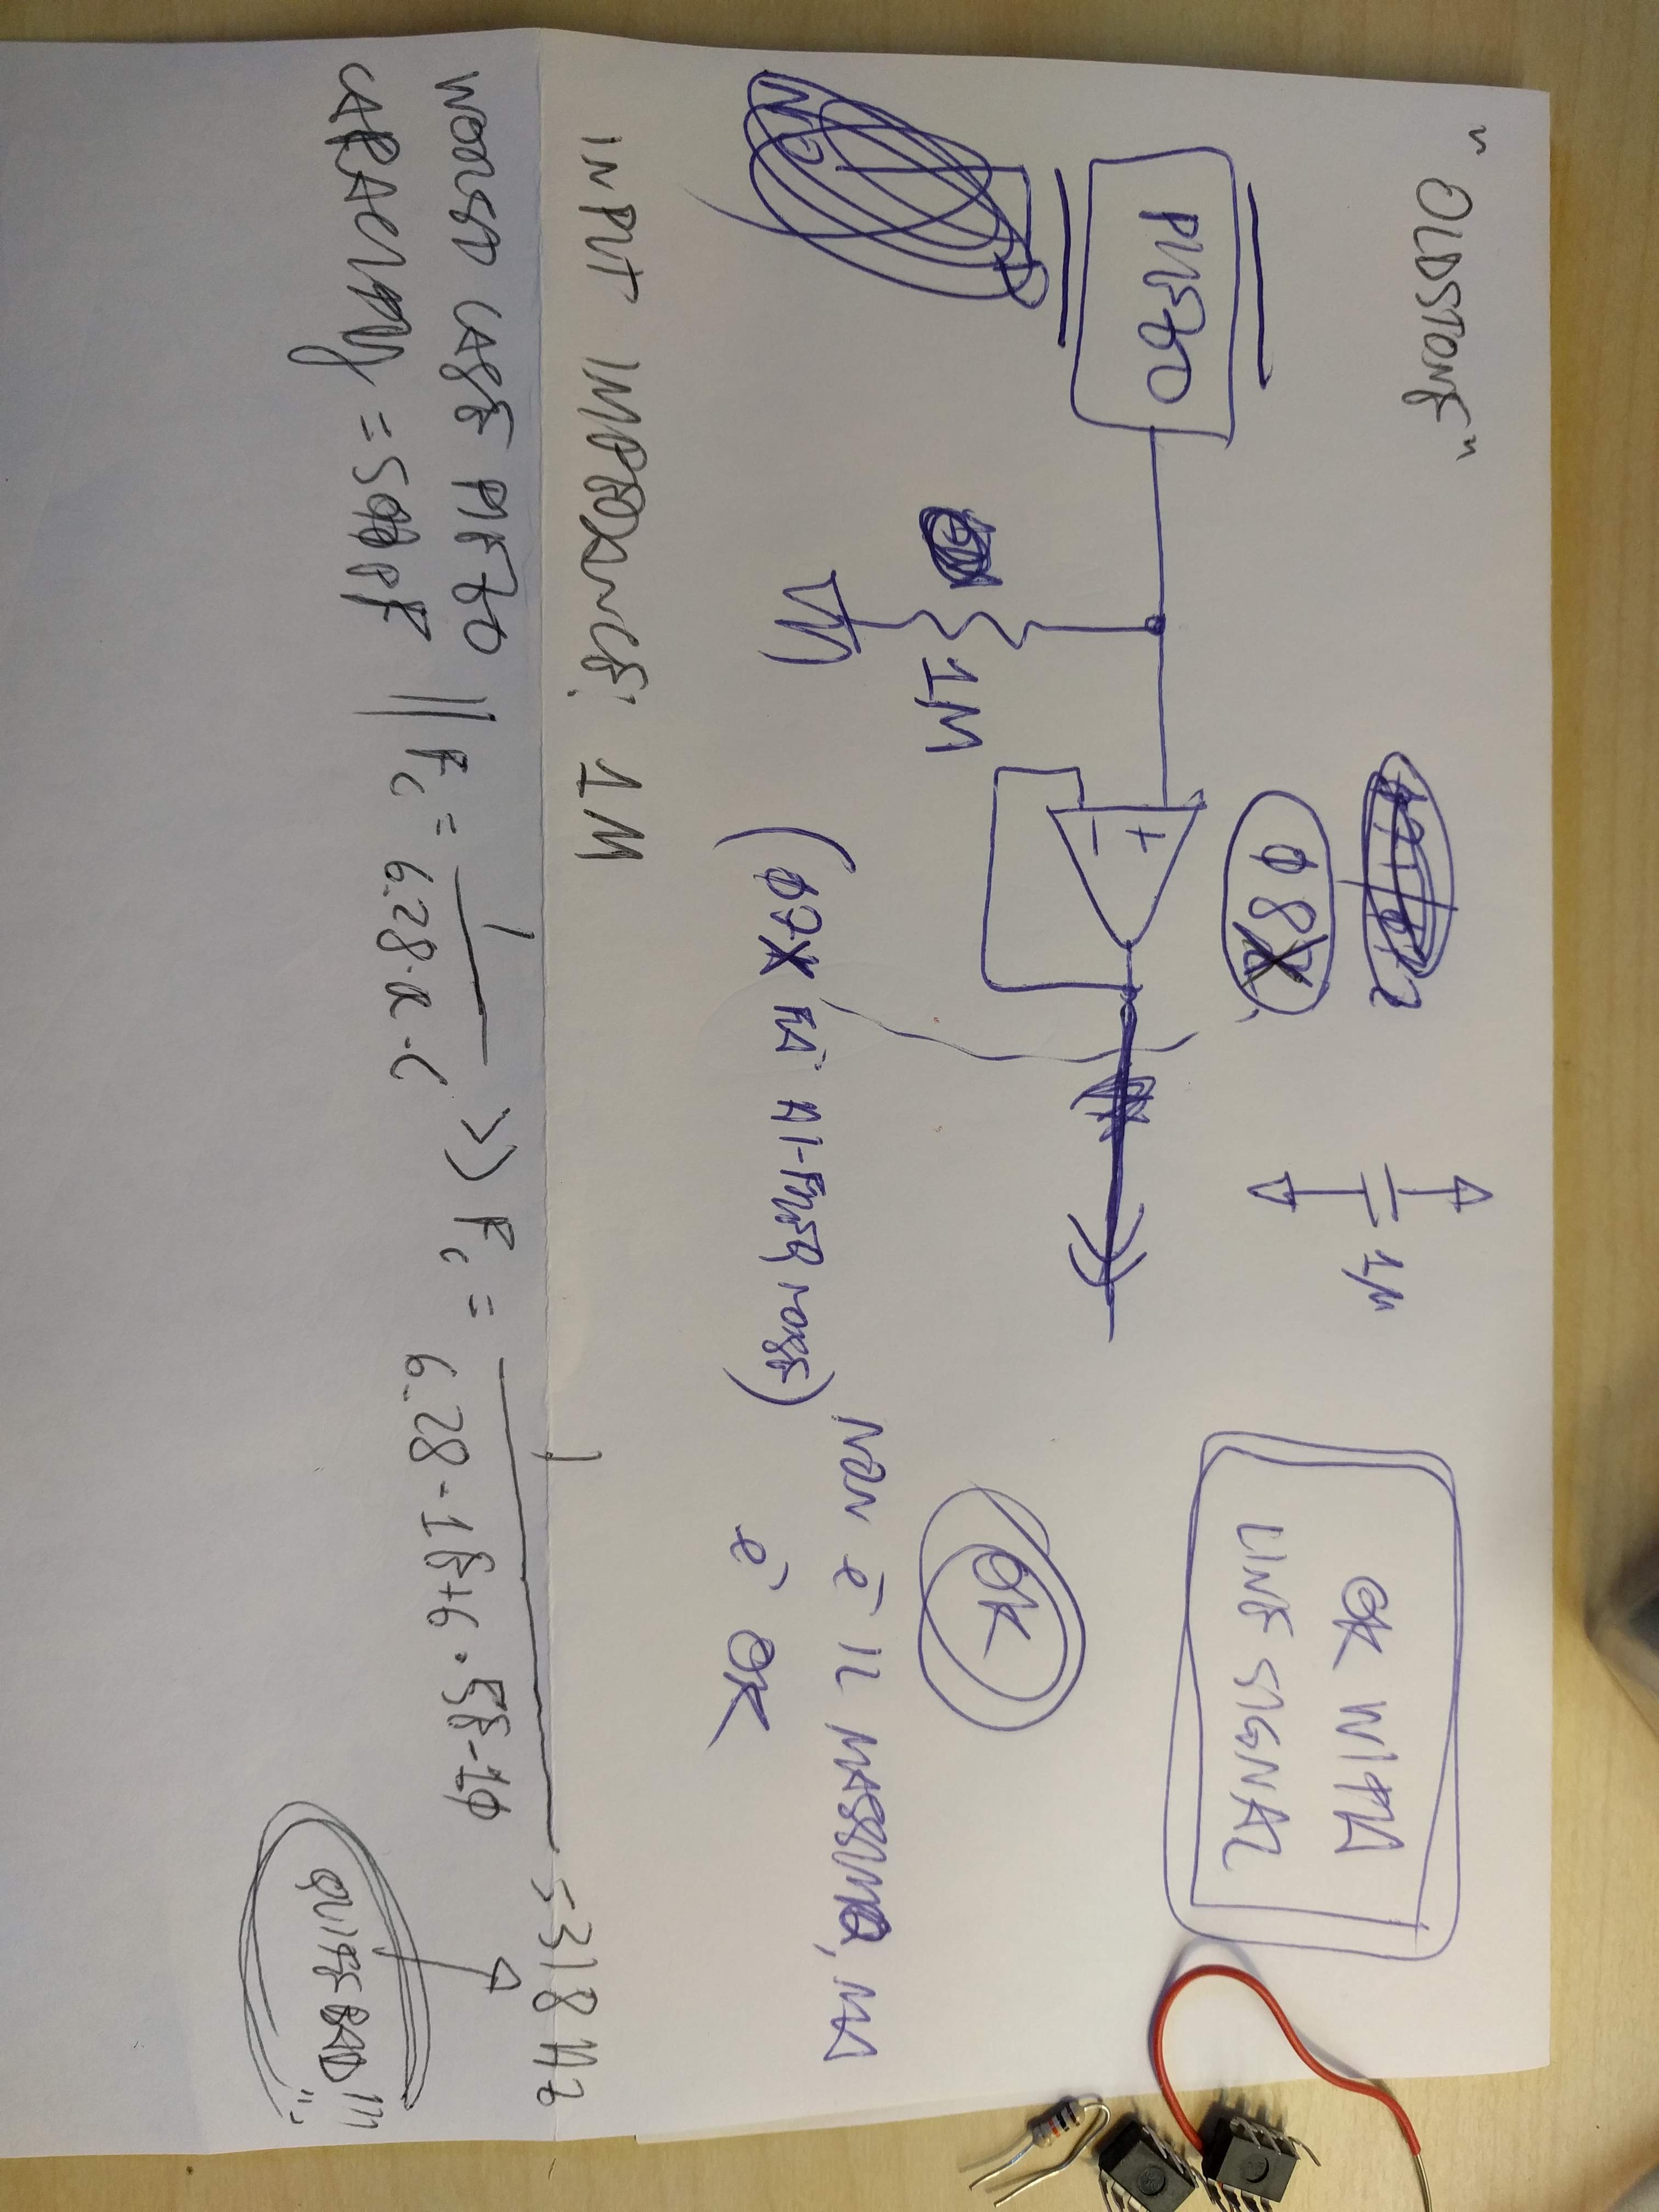 "OLDSTONE"
Ø8X
1µ
OK WITH
LINE SIGNAL
PIEZO
+
-
1M
OK
NON È IL MASSIMO, MA
È OK
(Ø7X FA HI-FREQ NOISE)
NO
INPUT IMPEDANCE: 1M
WORSD CASE PIEZO
CAPACITY = 5ØØpF
Fc = 1 / 6.28·R·C >> Fc = 1 / 6.28·1E+6·5E-1Ø = 318 HZ
QUITE BAD!!!